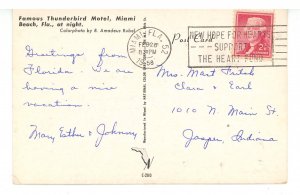 Famous Thunderbird Motel, Miami
Beach, Fla., at night.
Colorphoto by R. Amadeus Rubel
Post Card
MIAMI, FLA. 52
FEB 26
PM
1958
NEW HOPE FOR HEARTS
SUPPORT
THE HEART FUND
Greetings from
Florida. We are
having a nice
vacation.
Mary Esther & Johnny
Mrs. Mart Fritch
Clara & Earl
1010 N. Main St.
Jasper, Indiana